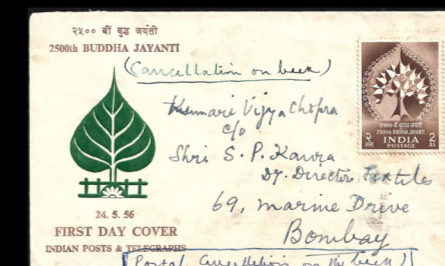 २५०० वीं बुद्ध जयंती
2500th BUDDHA JAYANTI
(Cancellation on back)
Kumari Vijya Chopra
c/o
Shri S. P. Kawra
Dy. Director Textile
69, Marine Drive
Bombay
24. 5. 56
FIRST DAY COVER
INDIAN POSTS & TELEGRAPHS
(Postal Cancellation on the back)
INDIA
POSTAGE
2